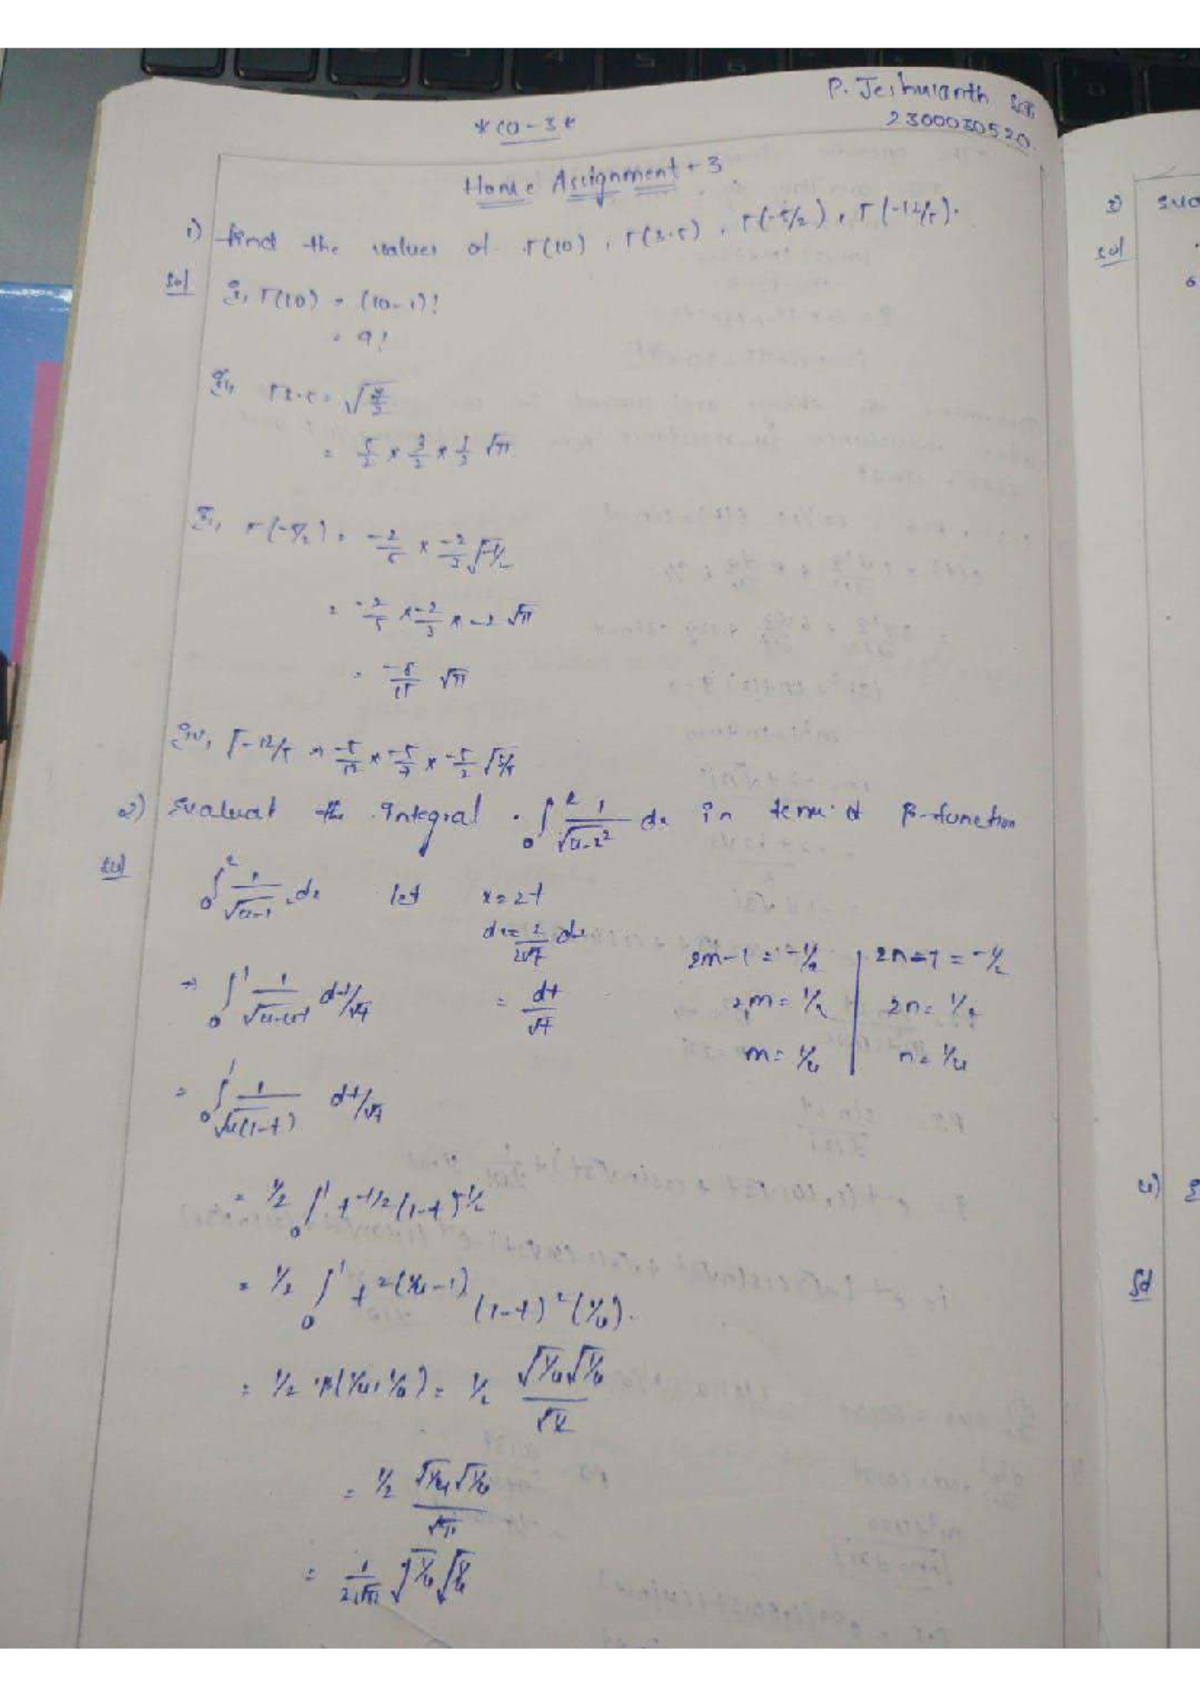 P. Jeshwanth
2300030520
* CO-3 *
Home Assignment - 3
1) find the values of Γ(10), Γ(3.5), Γ(-5/2), Γ(-12/5).
sol i, Γ(10) = (10-1)!
= 9!
ii, Γ3.5 =
= 5/2 × 3/2 × 1/2 √π
iii, Γ(-5/2) = -2/5 × -2/3 √-1/2
= -2/5 × -2/3 × -2 √π
= -8/15 √π
iv, Γ-12/5 = -5/12 × -5/7 × -5/2 √3/5
2) Evaluat the integral . ∫₀² 1/√4-x² dx in term of β-function
sol ∫₀² dx let x=2t
= dt/√t
2m-1 = -1/2 | 2n-1 = -1/2
2m = 1/2 | 2n = 1/2
m = 1/4 | n = 1/4
→ ∫₀¹ 1/√4-4t dt/√t
= ∫₀¹ 1/√4(1-t) dt/√t
= 1/2 ∫₀¹ t^-1/2 (1-t)^-1/2
= 1/2 ∫₀¹ t^2(1/4-1) (1-t)^2(1/4).
= 1/2 β(1/4, 1/4) = 1/2 √1/4 √1/4 / √1/2
= 1/2 √1/4 √1/4 / √π
= 1/2√π √1/4 √1/4
3) 
sol
4)
Sol